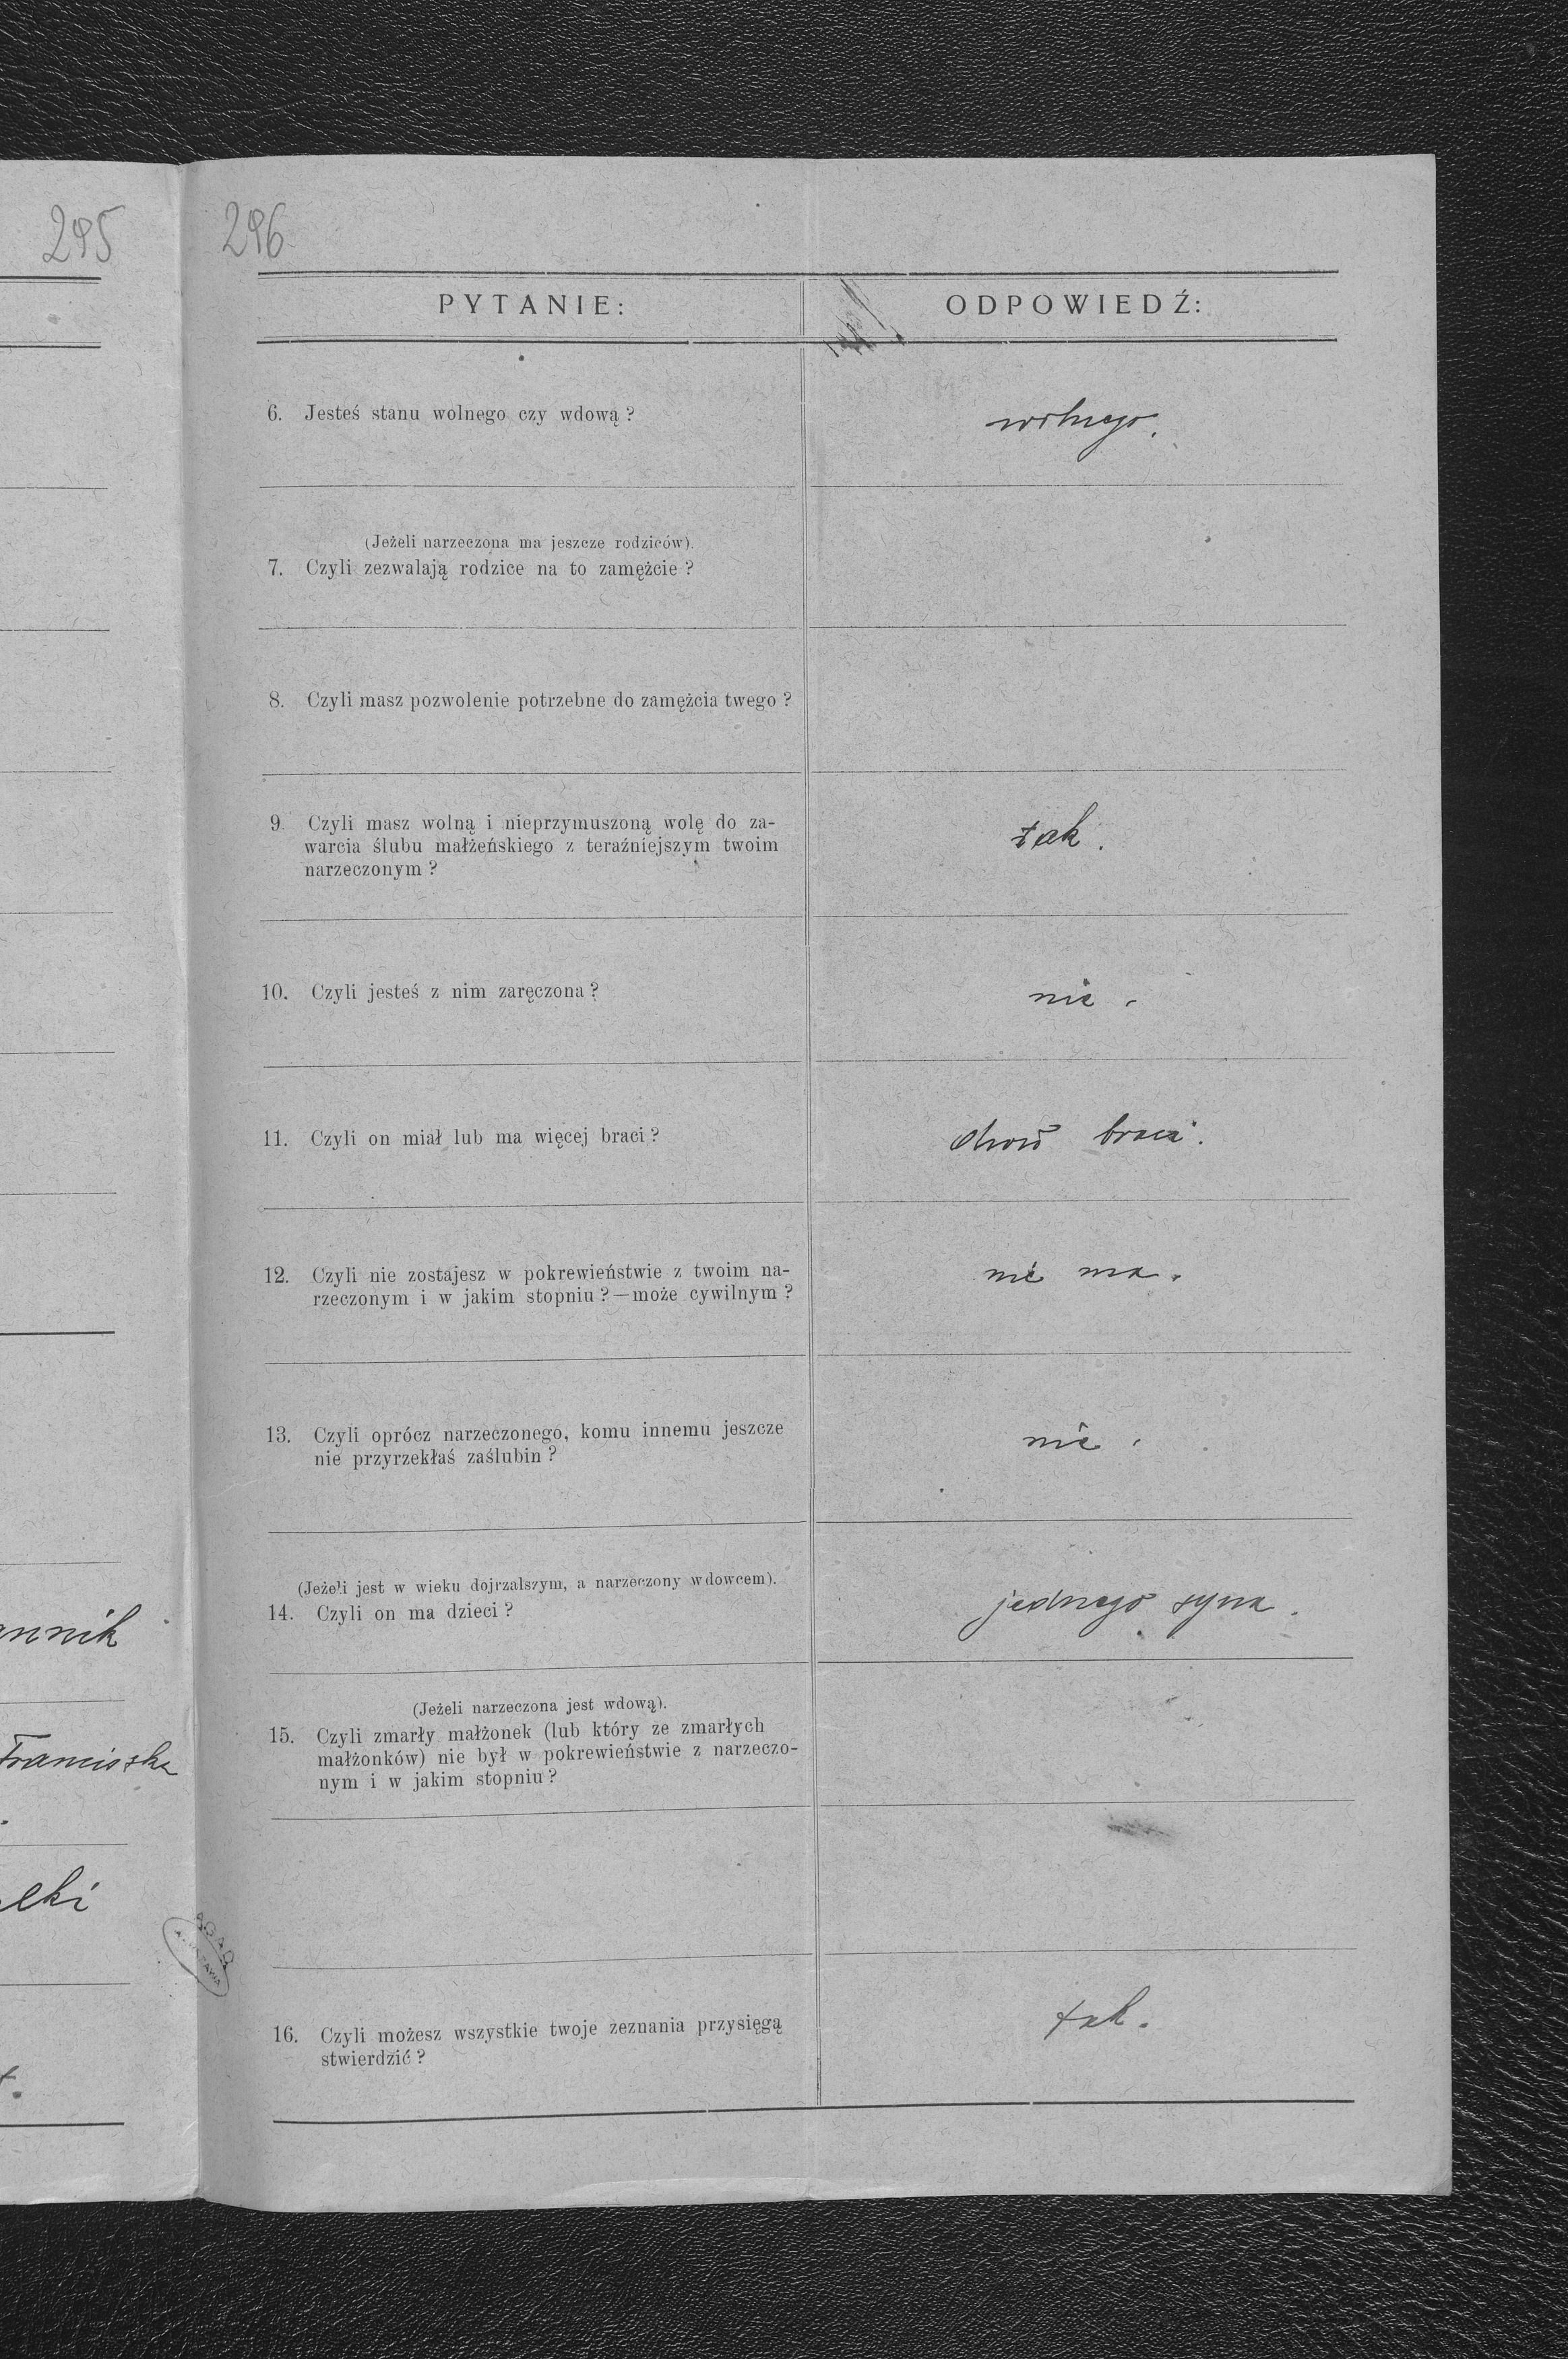 295
annik
Franciszka
elki
296
PYTANIE: ODPOWIEDŹ:
6. Jesteś stanu wolnego czy wdową? wolnego.
(Jeżeli narzeczona ma jeszcze rodziców).
7. Czyli zezwalają rodzice na to zamężcie?
8. Czyli masz pozwolenie potrzebne do zamężcia twego?
9. Czyli masz wolną i nieprzymuszoną wolę do za-
warcia ślubu małżeńskiego z teraźniejszym twoim tak.
narzeczonym?
10. Czyli jesteś z nim zaręczona? nie.
11. Czyli on miał lub ma więcej braci? braci.
12. Czyli nie zostajesz w pokrewieństwie z twoim na- nie ma.
rzeczonym i w jakim stopniu?—może cywilnym?
13. Czyli oprócz narzeczonego, komu innemu jeszcze nie.
nie przyrzekłaś zaślubin?
(Jeżeli jest w wieku dojrzalszym, a narzeczony wdowcem).
14. Czyli on ma dzieci? jednego syna.
(Jeżeli narzeczona jest wdową).
15. Czyli zmarły małżonek (lub który ze zmarłych
małżonków) nie był w pokrewieństwie z narzeczo-
nym i w jakim stopniu?
16. Czyli możesz wszystkie twoje zeznania przysięgą tak.
stwierdzić?